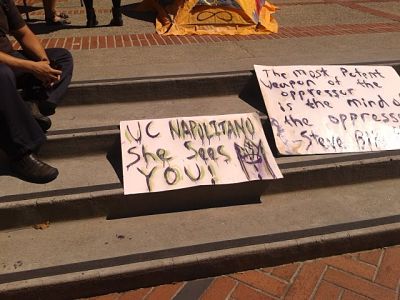 UC NAPOLITANO
She Sees
YOU!
The most Potent
weapon of the
oppressor
is the mind of
the oppresse
Steve Bi